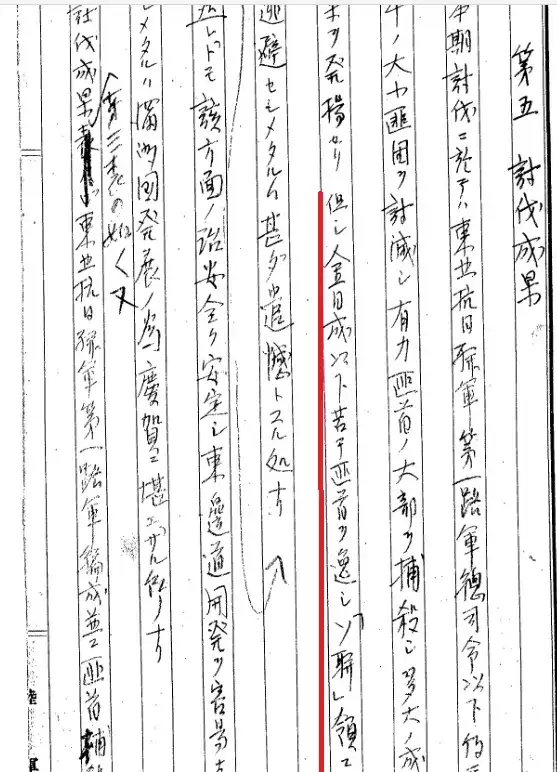 第五 討伐成果
本期討伐ニ於テハ東北抗日聯軍第一路軍総司令以下約
千ノ大小匪団ヲ討滅シ有力匪首ノ大部ヲ捕殺シ多大ノ成
果ヲ発揚セリ 但シ金日成以下若干匪首ヲ逸シソ聯領ニ
逃避セシメタルハ甚ダ遺憾トスル処ナリ
然レドモ該方面ノ治安全ク安定シ東辺道開発ヲ容易な
シメタルハ満洲国発展ノ為慶賀ニ堪エザル処ナリ
第三表の如く
討伐成果 東北抗日聯軍第一路軍編成並ニ匪首捕
陸 軍